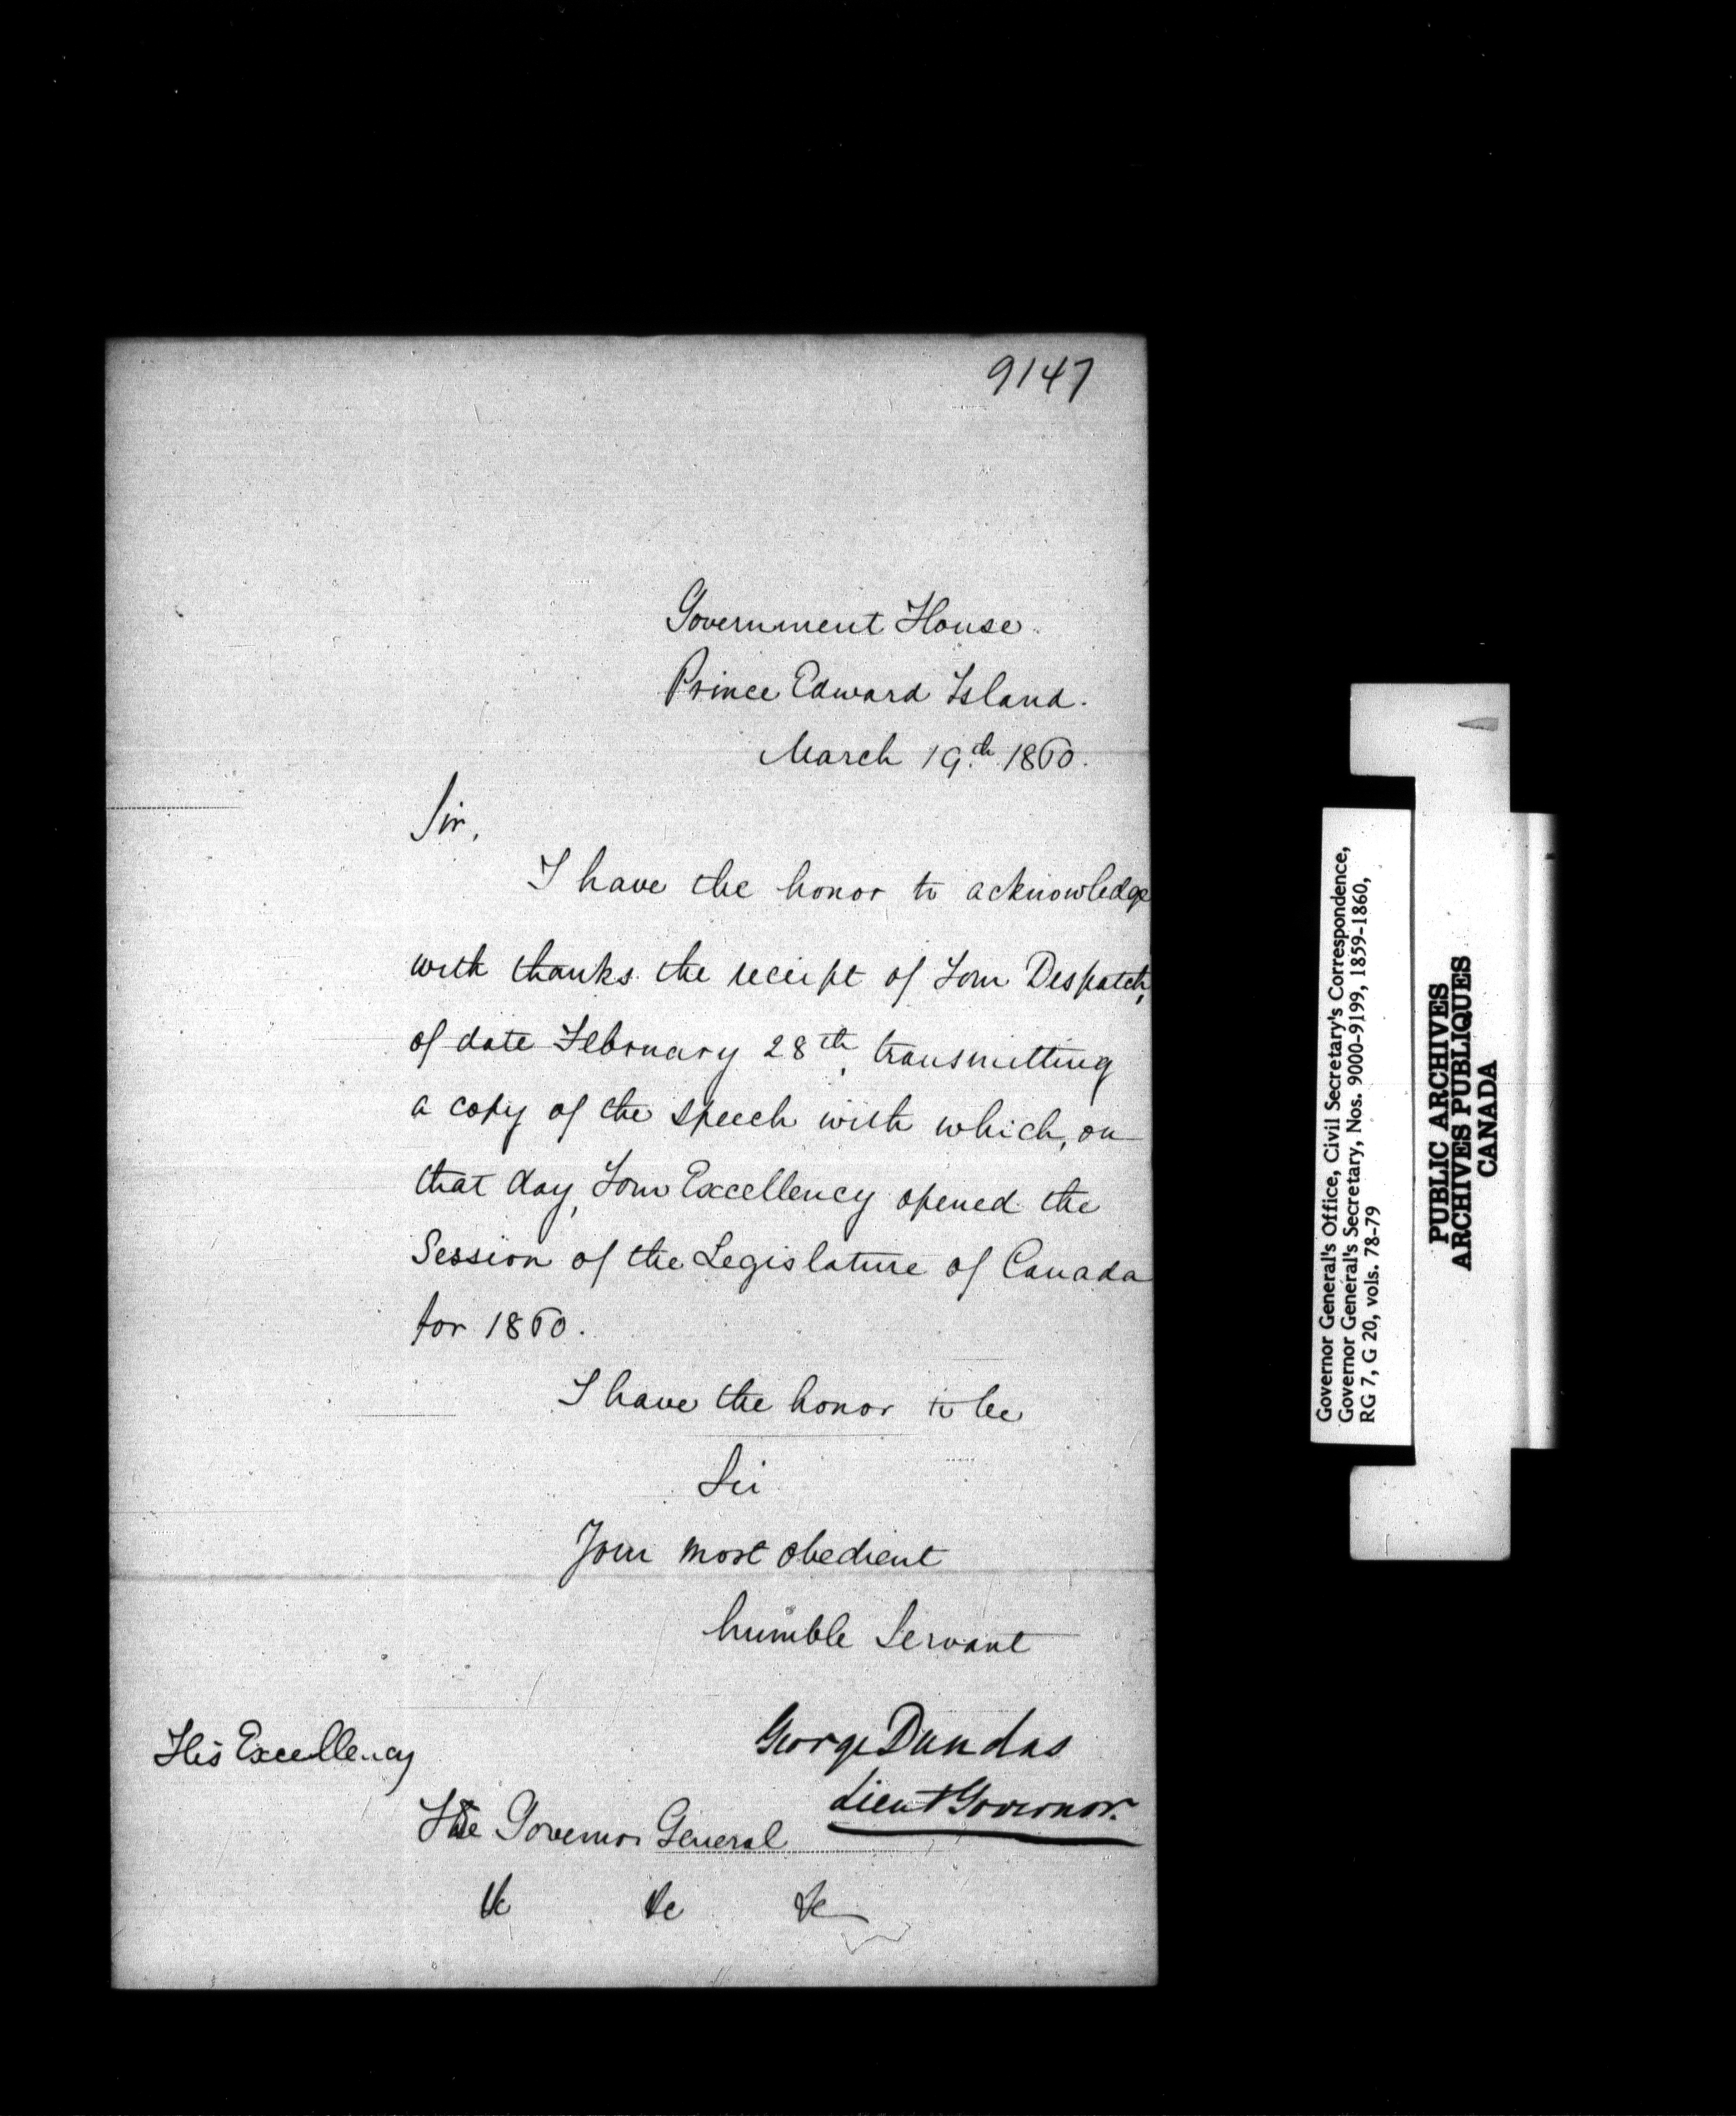 9147
Government House.
Prince Edward Island.
March 19.th 1860.
Sir,
I have the honor to acknowledge
with thanks the receipt of Your Despatch,
of date February 28th, transmitting
a copy of the speech with which, on
that day, Your Excellency opened the
Session of the Legislature of Canada
for 1860.
I have the honor to be
Sir
Your most obedient
humble Servant
George Dundas
Lieut Governor.
His Excellency
The Governor General
&c &c &c
Governor General's Office, Civil Secretary's Correspondence,
Governor General's Secretary, Nos. 9000-9199, 1859-1860,
RG 7, G 20, vols. 78-79
PUBLIC ARCHIVES
ARCHIVES PUBLIQUES
CANADA